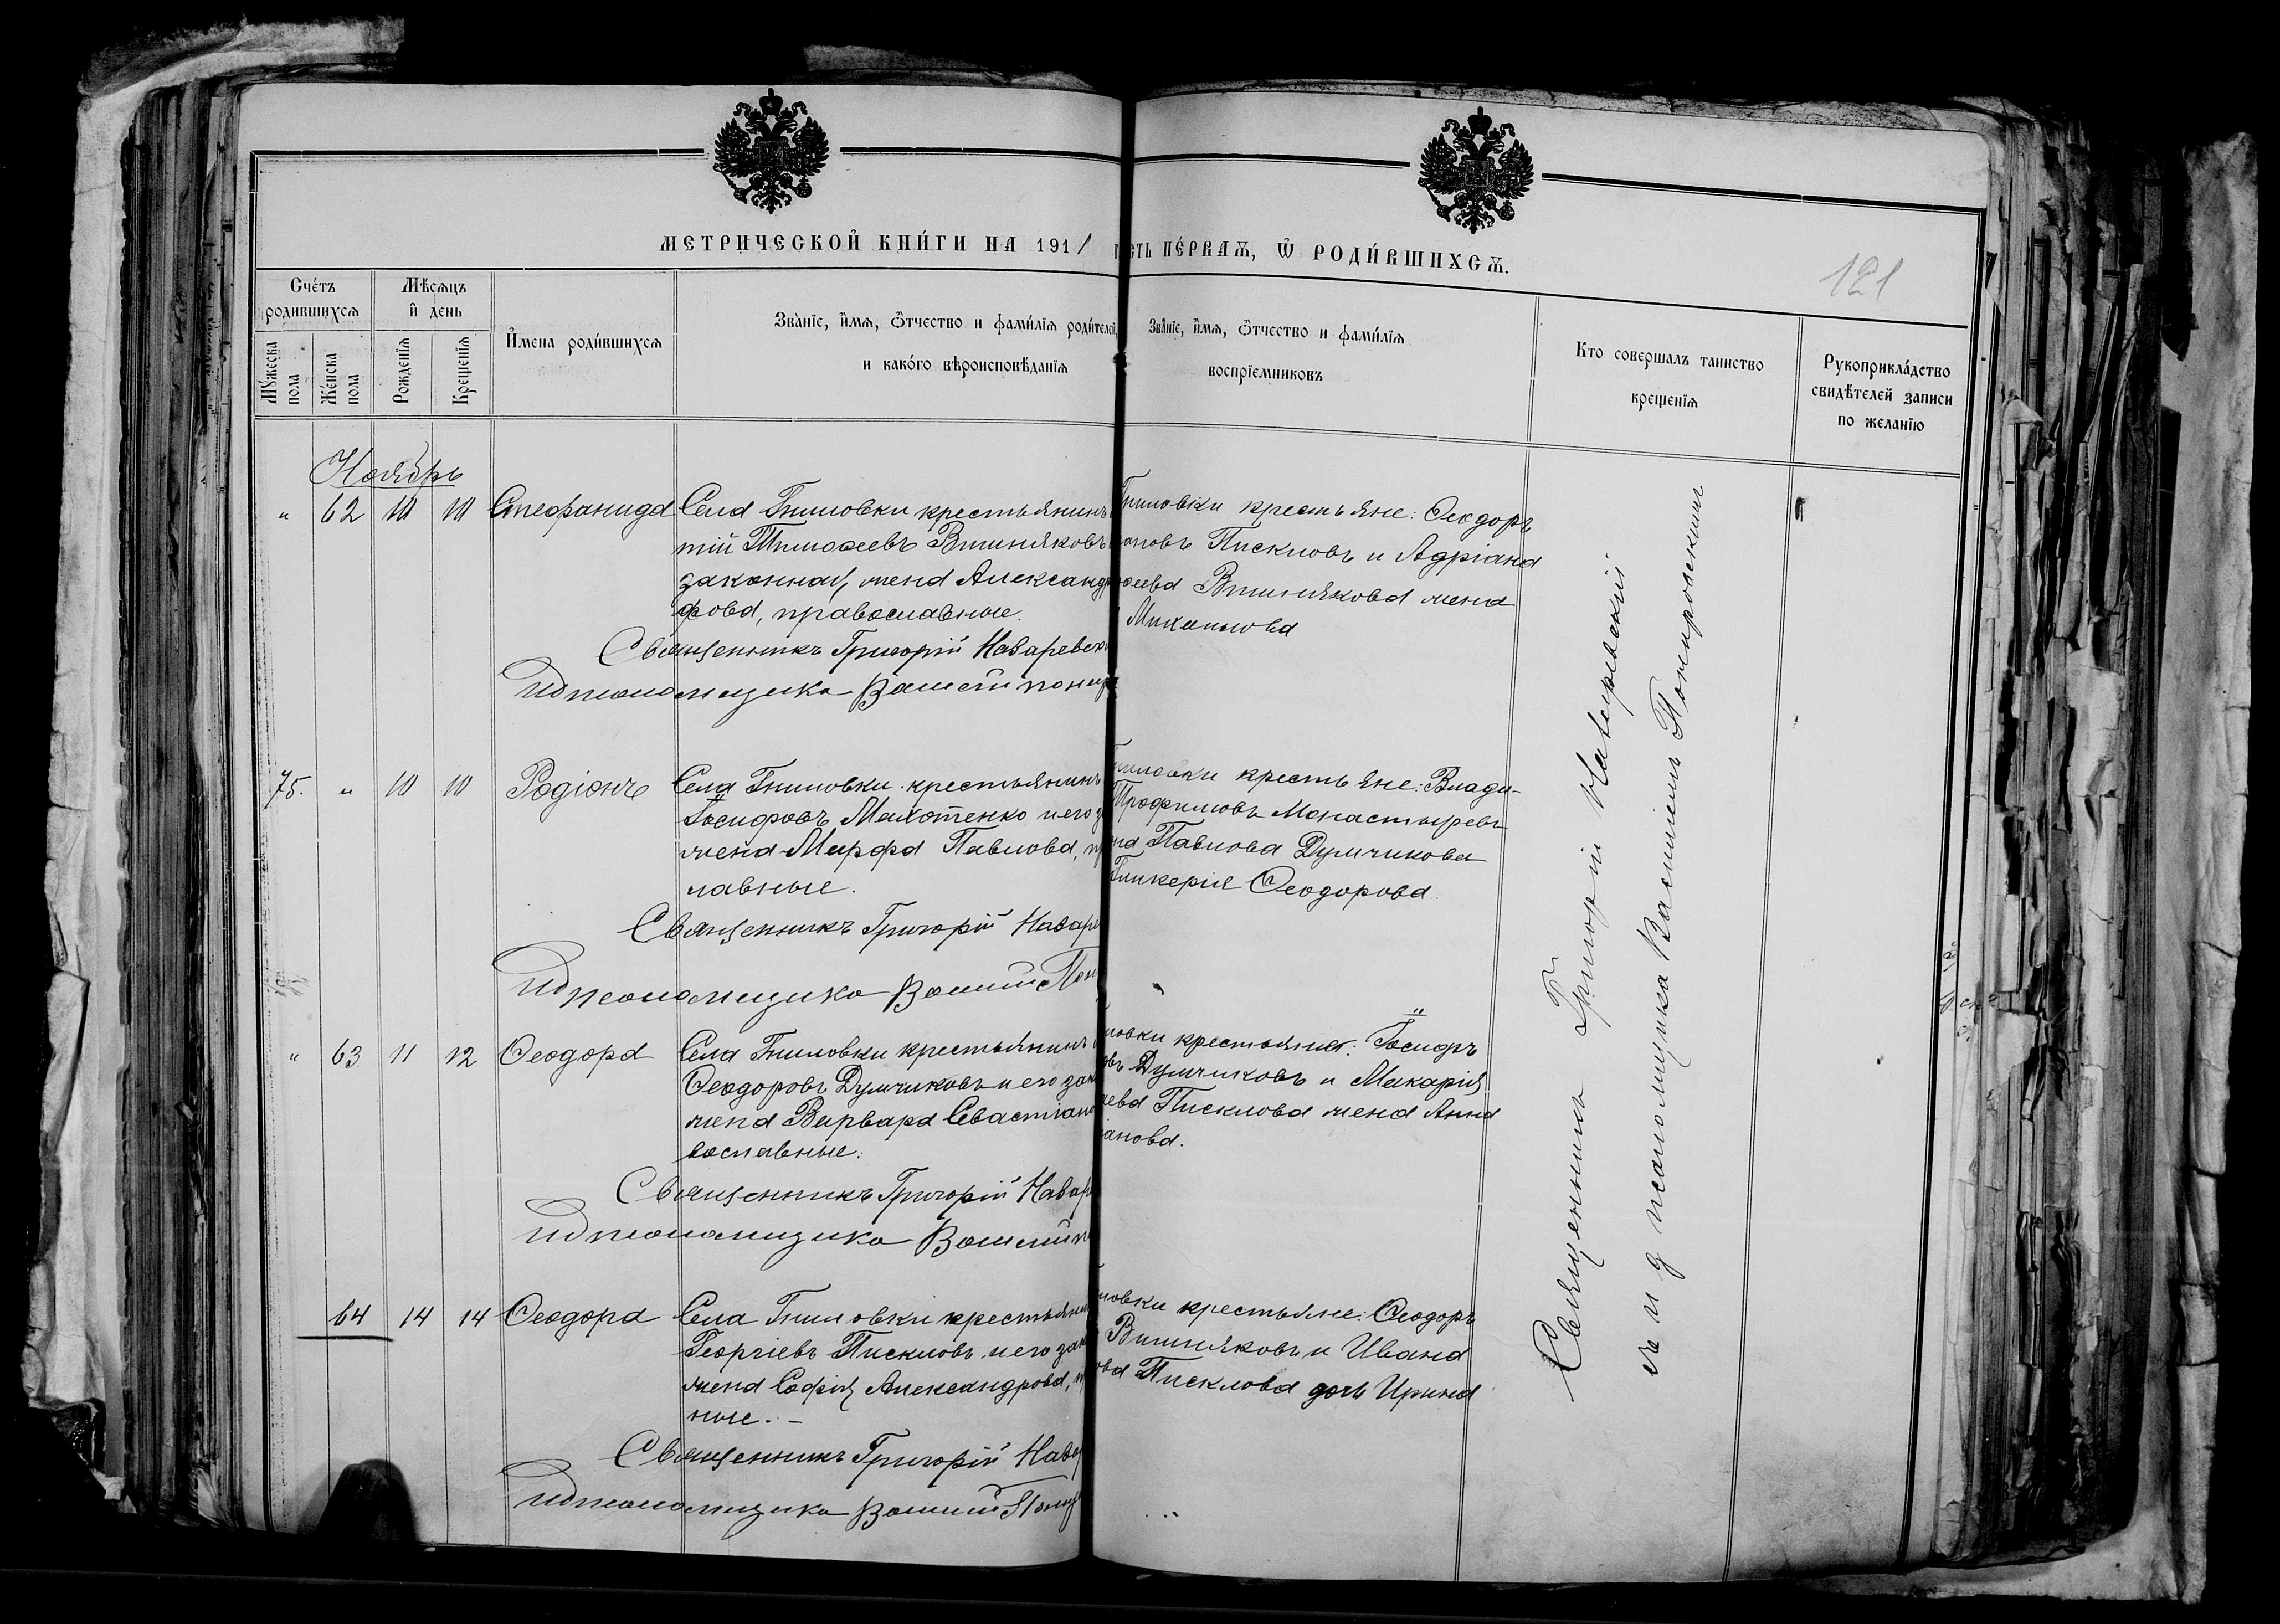 МЕТРИЧЕСКОЙ КНИГИ НА 1911
сть ПЕРВАЯ, Ѿ РОДИВШИХСЯ.
121
Счетъ родившихся
Мужеска пола
Женска пола
Мѣсяцъ и день
Рожденія
Крещенія
Имена родившихся
Званіе, имя, ѿтчество и фамилія родителей,
и какого вѣроисповѣданія
Званіе, имя, ѿтчество и фамилія
воспріемниковъ
Кто совершалъ таинство
крещенія
Рукоприкладство
свидѣтелей записи
по желанію
Ноябрь
" 62 10 10 Стефанида
Села Гниловки крестьянинъ
тій Тимоѳеевъ Вишняковъ
законная жена Александр
фова, православные.
Священникъ Григорій Назаревск
ид псаломщика Василій
Гниловки крестьяне: Ѳеодоръ
ановъ Писклов и Адріана
ѳеева Вишнякова жена
Михаилова
75. " 10 10 Родіонъ
Села Гниловки крестьянинъ
Іосифовъ Махотенко и его з
жена Марфа Павлова, п
лавные.
Священникъ Григорій Назар
ид псаломщика Василій Пон
ниловки крестьяне: Влади-
Трофимовъ Монастыревъ
на Павлова Думчикова
Гликерія Ѳеодорова.
" 63 11 12 Ѳеодора
Села Гниловки крестьянинъ
Ѳеодоровъ Думчиковъ и его зак
жена Варвара Севастіан
вославные.
Священникъ Григорій Назар
ид псаломщика Василій
ловки крестьяне: Іосифъ
овъ Думчиковъ и Макарія
ева Писклова жена Анна
анова.
64 14 14 Ѳеодора
Села Гниловки крестьян
Георгіевъ Писклов и его зак
жена Софія Александрова, п
ные. -
Священникъ Григорій Наза
ид псаломщика Василій
ловки крестьяне: Ѳеодоръ
Вишняковъ и Ивана
ова Писклова дочь Ирина
Священникъ Григорій
и д псаломщика Василій